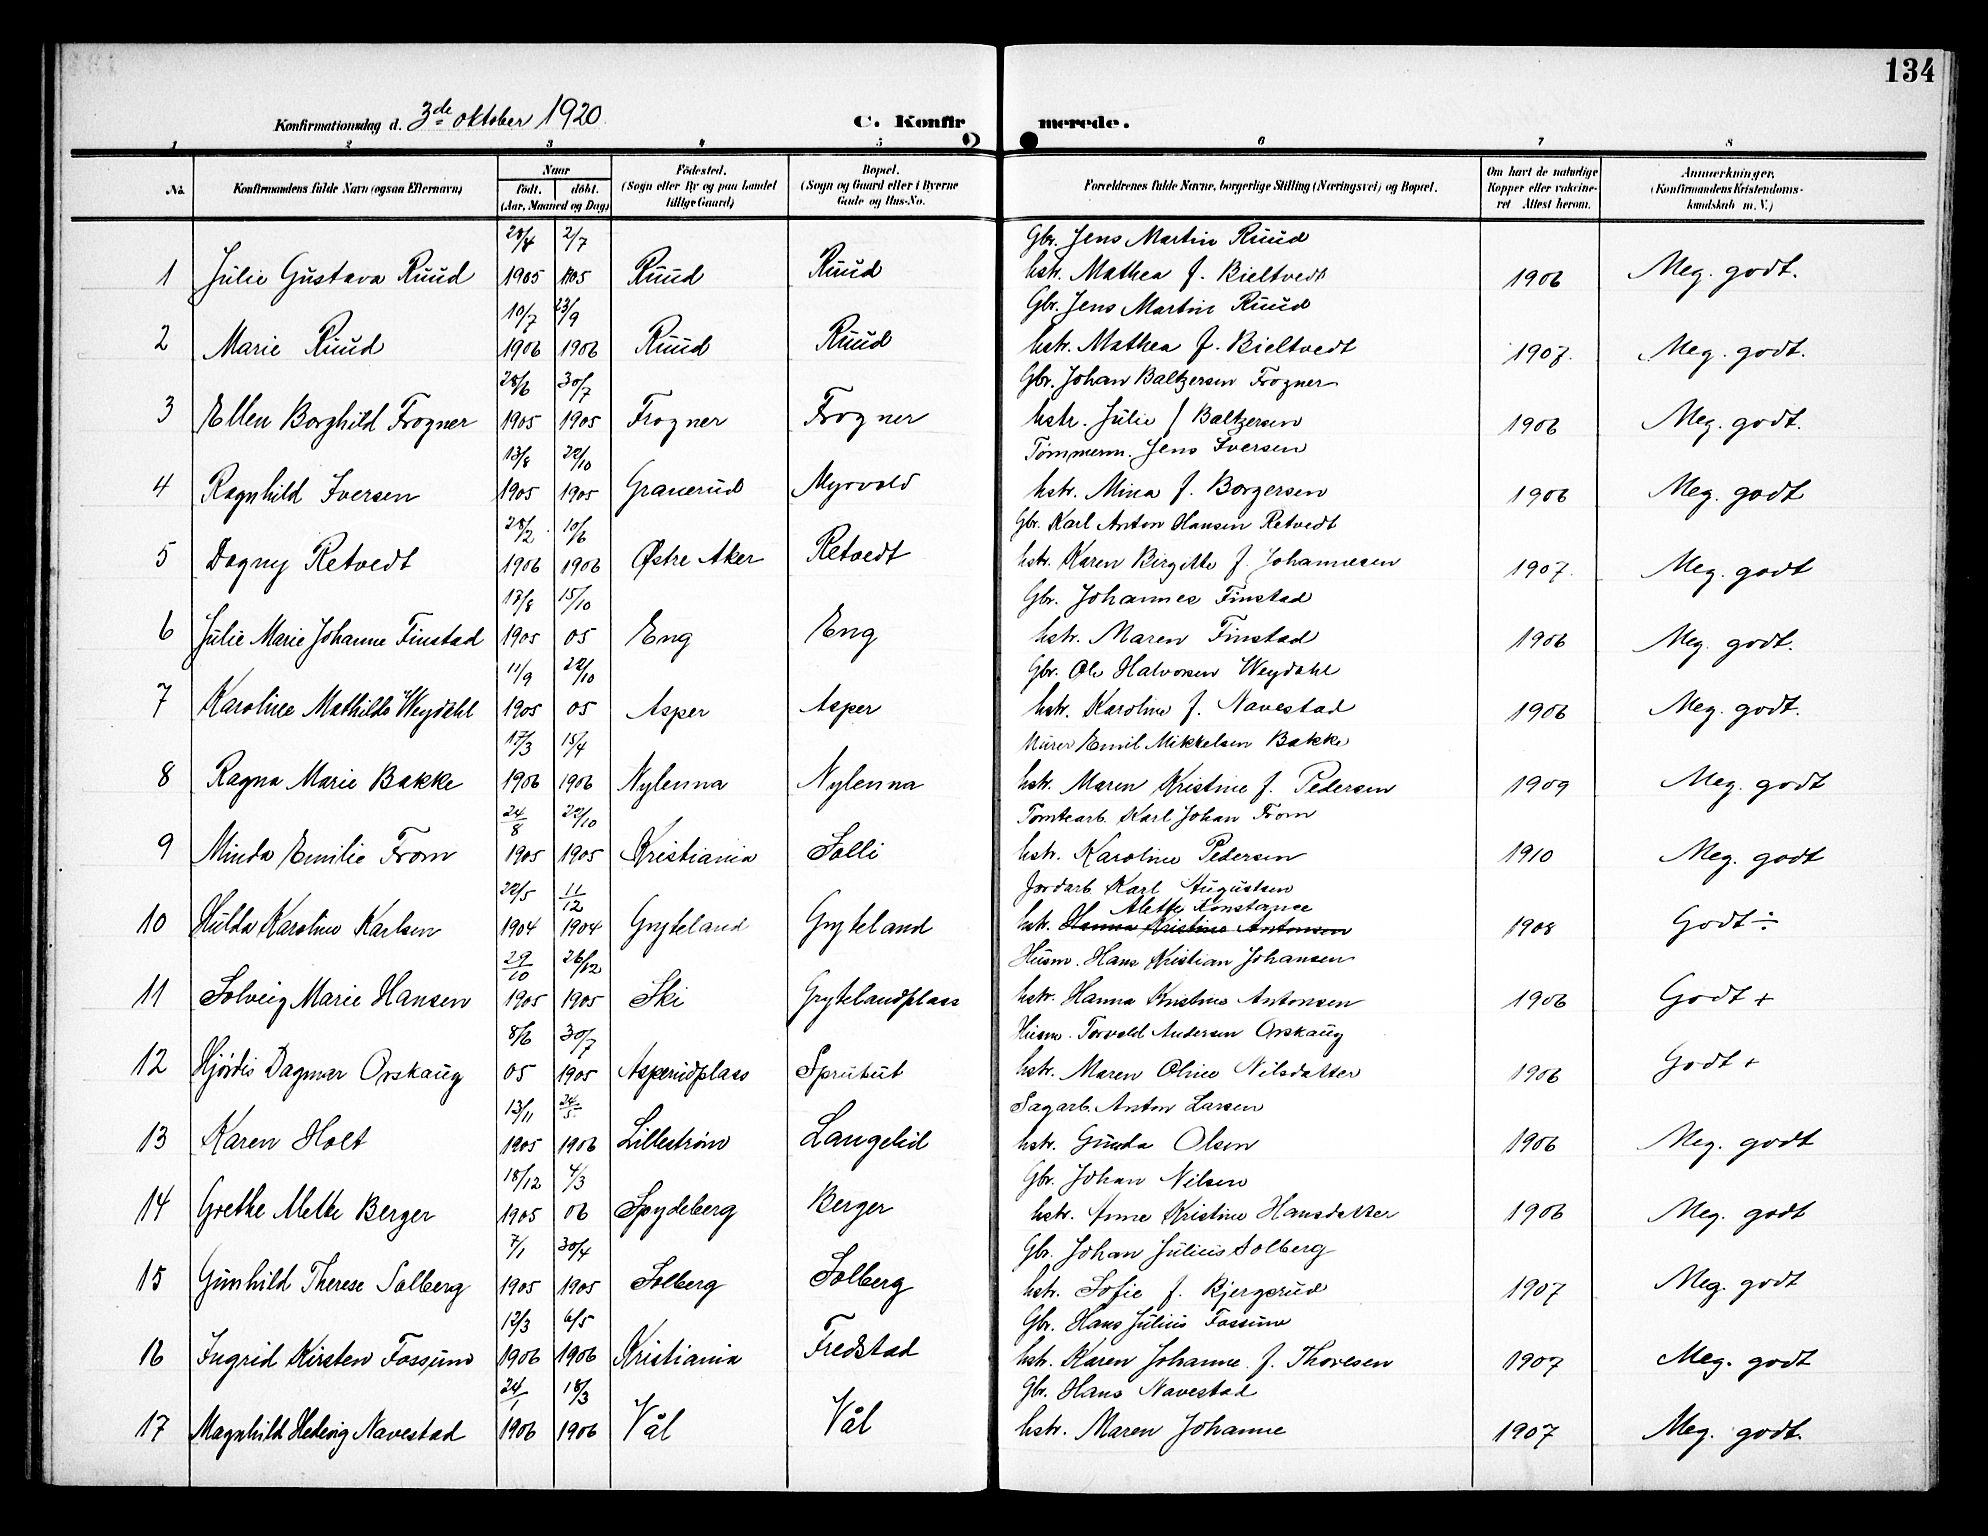 134
Konfirmationsdag d. 3de oktober 1920.
C. Konfirmerede.
1 2 3 4 5 6 7 8
No. Konfirmandens fulde Navn (ogsaa Efternavn) Naar födt. döbt. (Aar, Maaned og Dag) Födested. (Sogn eller By og paa Landet tillige Gaard) Bopæl. (Sogn og Gaard eller i Byerne Gade og Hus-No. Forældrenes fulde Navne, borgerlige Stilling (Næringsvei) og Bopæl. Om havt de naturlige Kopper eller vaccineret Attest herom. Anmærkninger. (Konfirmandens Kristendomskundskab m. V.)
28/4 2/7 Gbr. Jens Martin Ruud
1 Julie Gustava Ruud 1905 1905 Ruud Ruud hstr. Mathea f. Bieltvedt 1906 Meg. godt.
10/7 23/9 Gbr. Jens Martin Ruud
2 Marie Ruud 1906 1906 Ruud Ruud hstr. Mathea f. Bieltvedt 1907. Meg. godt.
28/6 30/7 Gbr. Johan Baltzersen Frogner
3 Ellen Borghild Frogner 1905 1905 Frogner Frogner hstr. Julie f Baltzersen 1906 Meg. godt.
13/8 22/10 Tømmerm. Jens Iversen
4 Ragnhild Iversen 1905 1905 Granerud Myrvold hstr. Mina f. Borgersen 1906 Meg. godt
28/2 10/6 Gbr. Karl Anton Hansen Retvedt
5 Dagny Retvedt 1906 1906 Østre Aker Retvedt hstr. Karen Birgitte f. Johannesen 1907. Meg. godt
17/8 15/10 Gbr. Johannes Finstad
6 Julie Marie Johanne Finstad 1905 05 Eng Eng hstr. Maren Finstad 1906 Meg. godt.
11/9 22/10 Gbr. Ole Halvorsen Weydahl
7 Karoline Mathilde Weydahl 1905 05 Asper Asper hstr. Karoline f. Navestad 1906 Meg. godt.
17/3 15/4 Murer Emil Mikkelsen Bakke
8 Ragna Marie Bakke 1906 1906 Nylenna Nylenna hstr. Maren Kristine f. Pedersen 1909 Meg. godt
24/8 22/10 Tomtearb. Karl Johan From
9 Minda Emilie From 1905 1905 Kristiania Solli hstr. Karoline Pedersen 1910 Meg. godt
22/5 11/12 Jordarb Karl Augustsen
Alette Konstance
10 Hulda Karoline Karlsen 1904 1904 Gryteland Gryteland hstr. Hanna Kristine Antonsen 1908 Godt ÷
29/10 26/12 Husm. Hans Kristian Johansen
11 Solveig Marie Hansen 1905 1905 Ski Grytelandplass hstr. Hanna Kristine Antonsen 1906 Godt +
8/6 30/7 Husm. Torvald Andersen Orskaug
12 Hjørdis Dagmar Orskaug 05 1905 Asperudplass Sprutut hstr. Maren Oline Nilsdatter 1906 Godt +
13/11 24/5 Sagarb. Anton Larsen
13 Karen Holt 1905 1906 Lillestrøm Langelid hstr. Gunda Olsen 1906 Meg. godt
18/12 4/3 Gbr. Johan Nilsen
14 Grethe Mette Berger 1905 06 Spydeberg Berger hstr. Anne Kristine Hansdatter 1906 Meg. godt
7/1 30/4 Gbr. Johan Julius Solberg
15 Gunhild Therese Solberg 1905 1905 Solberg Solberg hstr. Sofie f. Bjergerud 1907 Meg. godt
12/3 6/5 Gbr. Hans Julius Fossum
16 Ingrid Kirsten Fossum 1906 1906 Kristiania Fredstad hstr. Karen Johanne f. Thoresen 1907 Meg. godt
24/1 18/3 Gbr. Hans Navestad
17 Magnhild Hedvig Navestad 1906 1906 Vål Vål hstr. Maren Johanne 1907 Meg. godt.